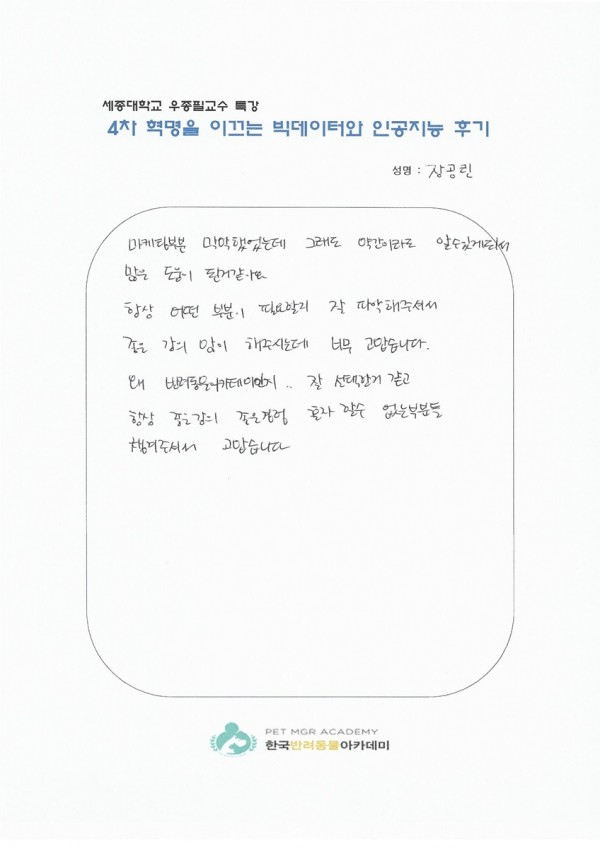 세종대학교 우종필교수 특강
4차 혁명을 이끄는 빅데이터와 인공지능 후기
성명 : 장공린
마케팅부분 막막했었는데 그래도 약간이라도 알수있게되서
많은 도움이 된거같아요
항상 어떤 부분이 필요할지 잘 파악해주셔서
좋은 강의 많이 해주시는데 너무 고맙습니다.
왜 반려동물아카데미인지.. 잘 선택한거 같고
항상 좋은강의 좋은경험 혼자 할수 없는부분들
챙겨주셔서 고맙습니다
PET MGR ACADEMY
한국반려동물아카데미